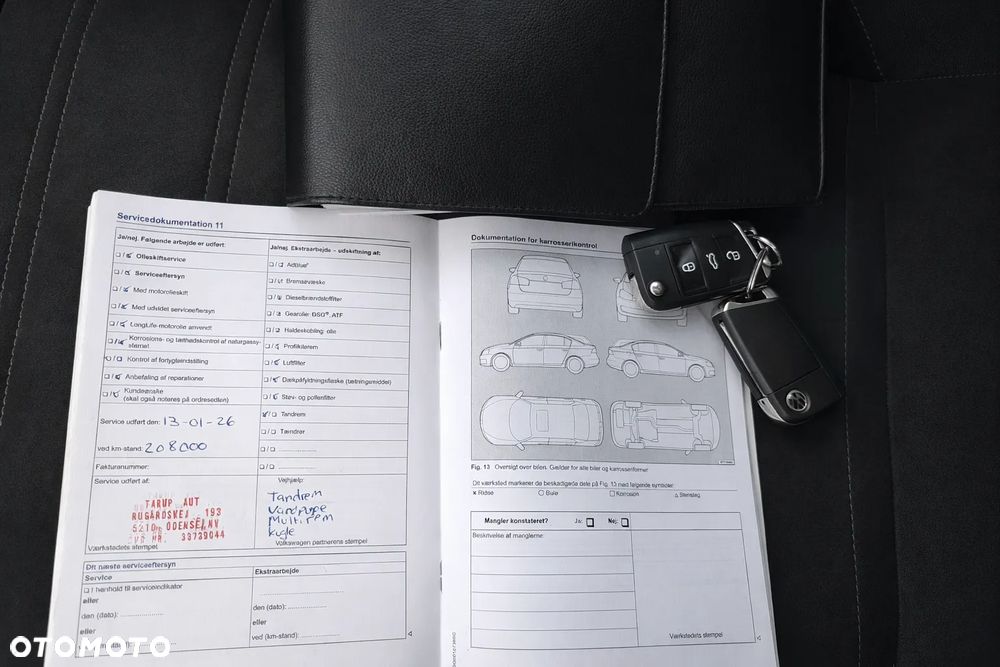 Servicedokumentation 11
Ja/nej. Følgende arbejde er udført:
☐/☑ Olieskiftservice
☐/☑ Serviceeftersyn
☐/☑ Med motorolieskift
☐/☑ Med udvidet serviceeftersyn
☐/☑ LongLife-motorolie anvendt
☐/☑ Korrosions- og tæthedskontrol af naturgassy-
stemet
☐/☐ Kontrol af forlygteindstilling
☐/☑ Anbefaling af reparationer
☐/☑ Kundeønske
(skal også noteres på ordresedlen)
Service udført den: 13-01-26
ved km-stand: 208000
Fakturanummer:
Service udført af:
TARUP AUT
RUGÅRDSVEJ 193
5210 ODENSE NV
CVS NR. 33739044
Værkstedets stempel
Ja/nej. Ekstraarbejde – udskiftning af:
☐/☐ AdBlue®
Bremsevæske
Dieselbrændstoffilter
Gearolie: DSG®, ATF
Haldexkobling: olie
Profilkilerem
Luftfilter
Dækpåfyldningsflaske (tætningsmiddel)
Støv- og pollenfilter
Tandrem
Tændrør
Vejhjælp:
Tandrem
Vandpumpe
Multirem
kugle
Volkswagen partnerens stempel
Dit næste serviceeftersyn
Service
☐ I henhold til serviceindikator
eller
den (dato):
eller
Ekstraarbejde
den (dato):
eller
ved (km-stand):
Dokumentation for karrosserikontrol
Fig. 13 Oversigt over bilen. Gælder for alle biler og karrosseriformer
Dit værksted markerer de beskadigede dele på Fig. 13 med følgende symboler:
x Ridse ○ Bule ☐ Korrosion △ Stenslag
Mangler konstateret? Ja: ☐ Nej: ☐
Beskrivelse af manglerne:
Værkstedets stempel
OTOMOTO